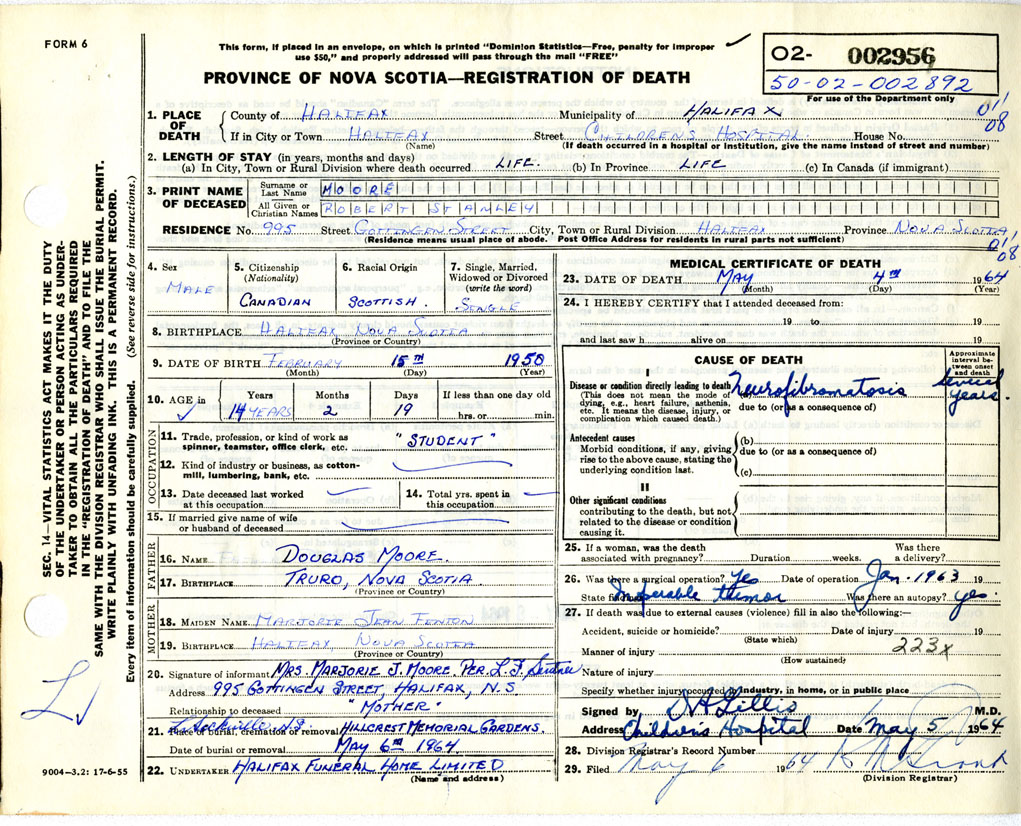 FORM 6
This form, if placed in an envelope, on which is printed "Dominion Statistics—Free, penalty for improper
use $50," and properly addressed will pass through the mail "FREE"
02- 002956
50-02-002892
For use of the Department only
PROVINCE OF NOVA SCOTIA—REGISTRATION OF DEATH
1. PLACE OF DEATH
County of HALIFAX Municipality of HALIFAX 011
If in City or Town HALIFAX Street CHILDREN'S HOSPITAL House No. 08
(Name) (If death occurred in a hospital or institution, give the name instead of street and number)
2. LENGTH OF STAY (in years, months and days)
(a) In City, Town or Rural Division where death occurred LIFE. (b) In Province LIFE (c) In Canada (if immigrant)
3. PRINT NAME OF DECEASED
Surname or Last Name MOORE
All Given or Christian Names ROBERT STANLEY
RESIDENCE No. 995 Street GOTTINGEN STREET City, Town or Rural Division HALIFAX Province NOVA SCOTIA
(Residence means usual place of abode. Post Office Address for residents in rural parts not sufficient) 01/08
4. Sex
MALE
5. Citizenship
(Nationality)
CANADIAN
6. Racial Origin
SCOTTISH.
7. Single, Married,
Widowed or Divorced
(write the word)
SINGLE
8. BIRTHPLACE HALIFAX NOVA SCOTIA
(Province or Country)
9. DATE OF BIRTH FEBRUARY 15TH 1950
(Month) (Day) (Year)
10. AGE in
Years Months Days If less than one day old
14 YEARS 2 19 hrs. or min.
OCCUPATION
11. Trade, profession, or kind of work as
spinner, teamster, office clerk, etc. "STUDENT"
12. Kind of industry or business, as cotton-
mill, lumbering, bank, etc.
13. Date deceased last worked
at this occupation
14. Total yrs. spent in
this occupation
15. If married give name of wife
or husband of deceased
FATHER
16. NAME DOUGLAS MOORE.
17. BIRTHPLACE TRURO, NOVA SCOTIA
(Province or Country)
MOTHER
18. MAIDEN NAME MARJORIE JEAN FENTON
19. BIRTHPLACE HALIFAX NOVA SCOTIA
(Province or Country)
20. Signature of informant MRS MARJORIE J. MOORE. PER. L.F.
Address 995 GOTTINGEN STREET, HALIFAX, N.S
Relationship to deceased "MOTHER"
L. Sackville N.S.
21. Place of burial, cremation or removal HILLCREST MEMORIAL GARDENS.
Date of burial or removal MAY 6TH 1964
22. UNDERTAKER HALIFAX FUNERAL HOME LIMITED
(Name and address)
MEDICAL CERTIFICATE OF DEATH
23. DATE OF DEATH MAY 4TH 1964
(Month) (Day) (Year)
24. I HEREBY CERTIFY that I attended deceased from:
19 to 19
and last saw h alive on 19
CAUSE OF DEATH
Approximate interval between onset and death
I
Disease or condition directly leading to death Neurofibromatosis several years.
(This does not mean the mode of
dying, e.g., heart failure, asthenia,
etc. It means the disease, injury, or
complication which caused death.)
due to (or as a consequence of)
Antecedent causes
Morbid conditions, if any, giving
rise to the above cause, stating the
underlying condition last.
(b)
due to (or as a consequence of)
(c)
II
Other significant conditions
contributing to the death, but not
related to the disease or condition
causing it.
25. If a woman, was the death
associated with pregnancy? Duration weeks. Was there
a delivery?
26. Was there a surgical operation? Yes Date of operation Jan. 1963 19
State findings Inoperable tumor Was there an autopsy? yes.
27. If death was due to external causes (violence) fill in also the following:—
Accident, suicide or homicide? Date of injury 19
(State which)
Manner of injury 223x
(How sustained)
Nature of injury
Specify whether injury occurred in industry, in home, or in public place
Signed by D A Gillis M.D.
Address Children's Hospital Date May 5 1964
28. Division Registrar's Record Number
29. Filed May 6 1964
(Division Registrar)
SEC. 14—VITAL STATISTICS ACT MAKES IT THE DUTY
OF THE UNDERTAKER OR PERSON ACTING AS UNDER-
TAKER TO OBTAIN ALL THE PARTICULARS REQUIRED
IN THE "REGISTRATION OF DEATH" AND TO FILE THE
SAME WITH THE DIVISION REGISTRAR WHO SHALL ISSUE THE BURIAL PERMIT.
WRITE PLAINLY WITH UNFADING INK. THIS IS A PERMANENT RECORD.
Every item of information should be carefully supplied. (See reverse side for instructions.)
9004—3.2: 17-6-55